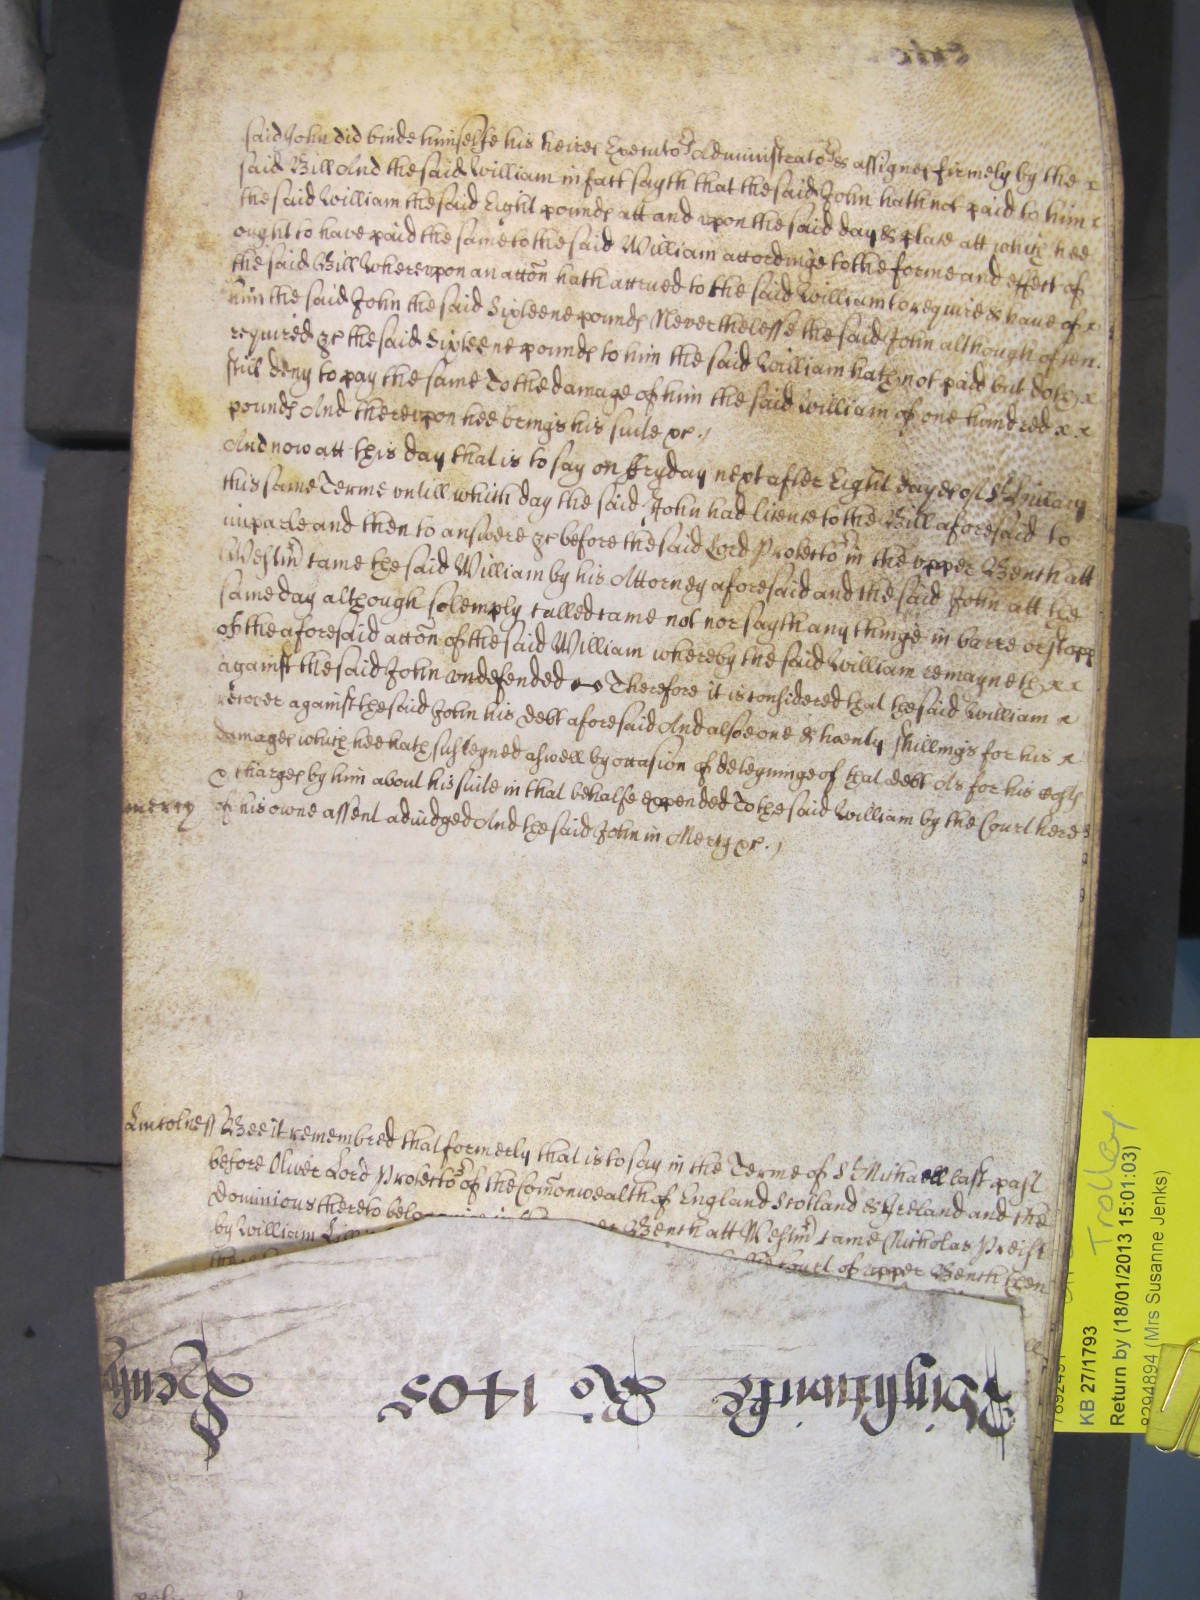 said John did binde himselfe his heires Executors Administrators & assignes firmely by the x
said Bill And the said William in fact sayth that the said John hath not paid to him x
the said William the said Eight pounds att and vpon the said day & place att which hee
ought to have paid the same to the said William accordinge to the forme and effect of
the said Bill Wherevpon an accōn hath accrued to the said William to require & haue of x
him the said John the said Sixteene pounds Neverthelesse the said John although often
required &c the said Sixteene pounds to him the said William hath not paid but doth x
still deny to pay the same To the damage of him the said William of one hundred x x
pounds And therevpon hee brings his suite &c.
And now att this day that is to say on ffryday next after Eight dayes of St Hillary
this same Terme vntill which day the said John had licence to the Bill aforesaid to
imparle and then to answere &c before the said Lord Protector in the vpper Bench att
Westm̄ came the said William by his Attorney aforesaid and the said John att the
same day although solemply called came not nor sayth any thinge in barre or stopp
of the aforesaid accōn of the said William whereby the said William remayneth x x
against the said John vndefended Therefore it is considered that the said William x
recover against the said John his debt aforesaid And alsoe one & twenty shillings for his x
damages which hee hath susteyned aswell by occasion of deteyninge of that debt As for his costs
& charges by him about his suite in that behalfe expended To the said William by the Court here
mercy of his owne assent adiudged And the said John in Mercy &c.
Lincolness Bee it remembred that formerly that is to say in the Terme of St Michaell last past
before Oliver Lord Protector of the Com̄onwealth of England Scotland & Ireland and the
Dominions thereto Bench att Westm̄ came Nicholas Preist
by William Court of vpper Bench then
Wightwicke Ro 1405
KB 27/1793
Return by (18/01/2013 15:01:03)
8294894 (Mrs Susanne Jenks)
Trolley